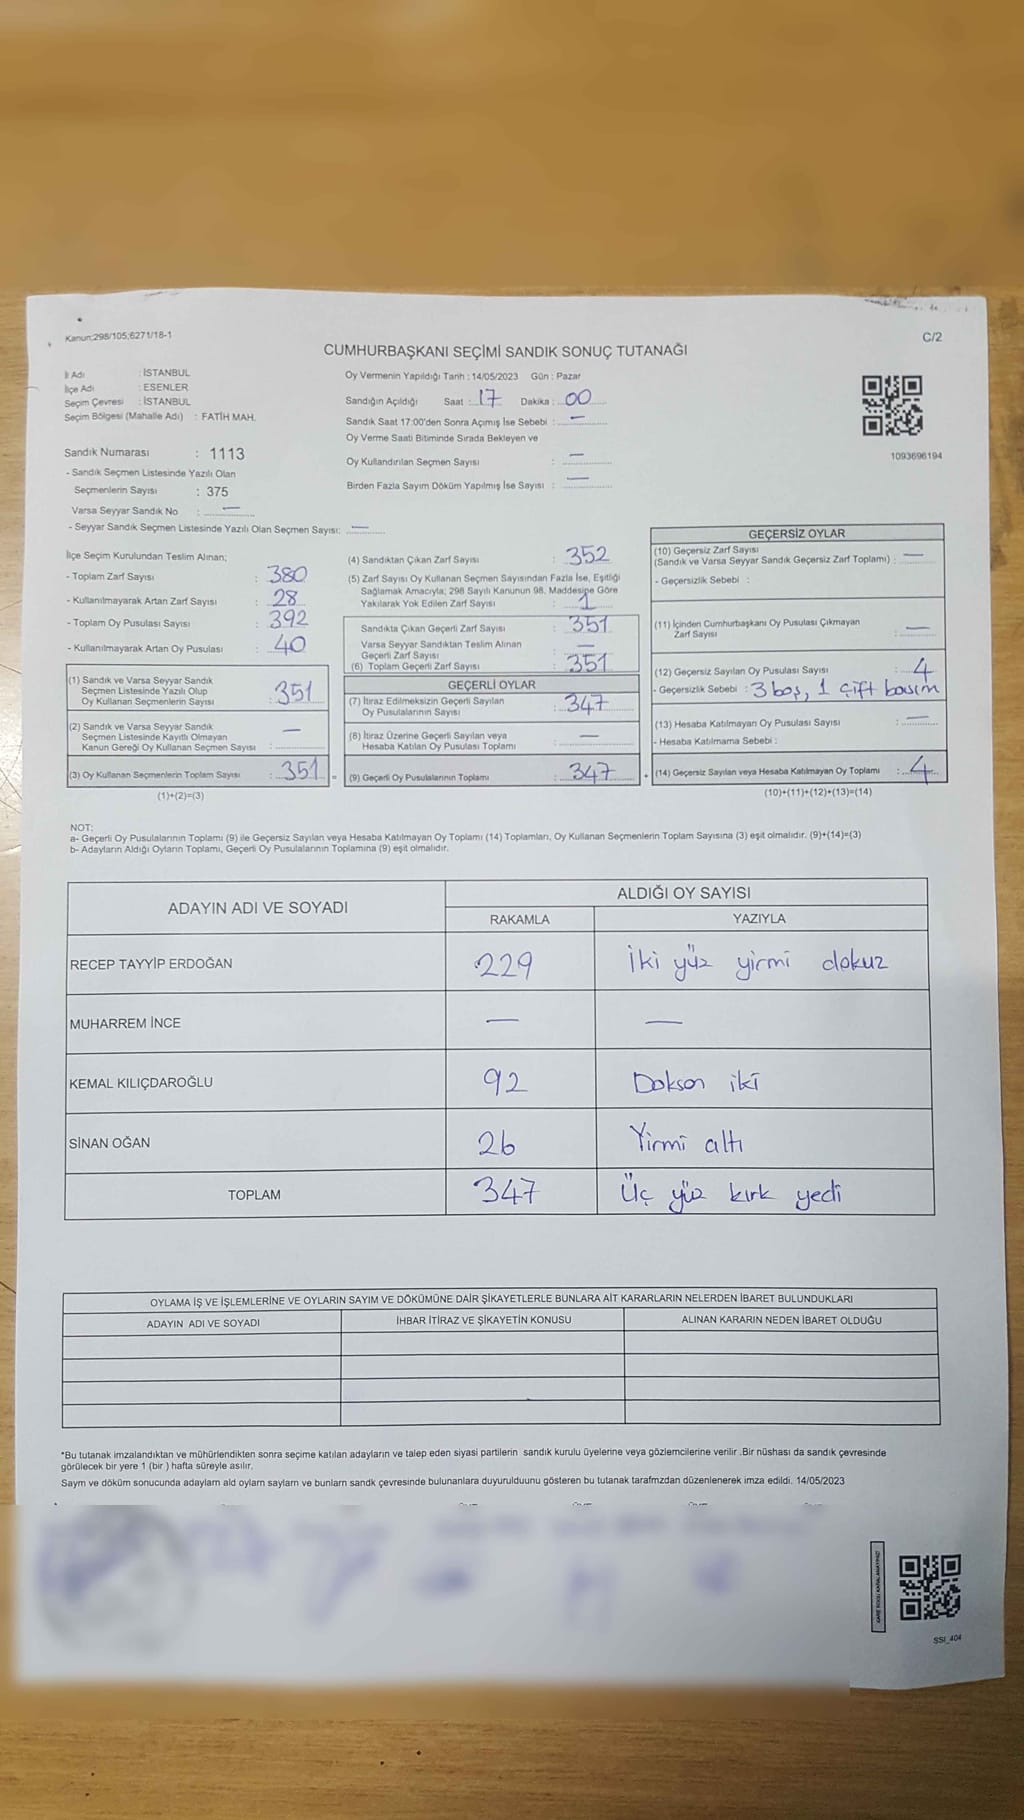 Kanun:298/105;6271/18-1
C/2
CUMHURBAŞKANI SEÇİMİ SANDIK SONUÇ TUTANAĞI
İl Adı : İSTANBUL
İlçe Adı : ESENLER
Seçim Çevresi : İSTANBUL
Seçim Bölgesi (Mahalle Adı) : FATİH MAH.
Sandık Numarası : 1113
- Sandık Seçmen Listesinde Yazılı Olan
Seçmenlerin Sayısı : 375
Varsa Seyyar Sandık No : —
- Seyyar Sandık Seçmen Listesinde Yazılı Olan Seçmen Sayısı: —
Oy Vermenin Yapıldığı Tarih : 14/05/2023 Gün : Pazar
Sandığın Açıldığı Saat : 17 Dakika : 00
Sandık Saat 17:00'den Sonra Açımış İse Sebebi : —
Oy Verme Saati Bitiminde Sırada Bekleyen ve
Oy Kullandırılan Seçmen Sayısı : —
Birden Fazla Sayım Döküm Yapılmış İse Sayısı : —
1093696194
İlçe Seçim Kurulundan Teslim Alınan;
- Toplam Zarf Sayısı : 380
- Kullanılmayarak Artan Zarf Sayısı : 28
- Toplam Oy Pusulası Sayısı : 392
- Kullanılmayarak Artan Oy Pusulası : 40
(1) Sandık ve Varsa Seyyar Sandık
Seçmen Listesinde Yazılı Olup
Oy Kullanan Seçmenlerin Sayısı : 351
(2) Sandık ve Varsa Seyyar Sandık
Seçmen Listesinde Kayıtlı Olmayan
Kanun Gereği Oy Kullanan Seçmen Sayısı : —
(3) Oy Kullanan Seçmenlerin Toplam Sayısı : 351 =
(1)+(2)=(3)
(4) Sandıktan Çıkan Zarf Sayısı : 352
(5) Zarf Sayısı Oy Kullanan Seçmen Sayısından Fazla İse, Eşitliği
Sağlamak Amacıyla; 298 Sayılı Kanunun 98. Maddesine Göre
Yakılarak Yok Edilen Zarf Sayısı : 1
Sandıkta Çıkan Geçerli Zarf Sayısı : 351
Varsa Seyyar Sandıktan Teslim Alınan
Geçerli Zarf Sayısı : —
(6) Toplam Geçerli Zarf Sayısı : 351
GEÇERLİ OYLAR
(7) İtiraz Edilmeksizin Geçerli Sayılan
Oy Pusulalarının Sayısı : 347
(8) İtiraz Üzerine Geçerli Sayılan veya
Hesaba Katılan Oy Pusulası Toplamı : —
(9) Geçerli Oy Pusulalarının Toplamı : 347
GEÇERSİZ OYLAR
(10) Geçersiz Zarf Sayısı
(Sandık ve Varsa Seyyar Sandık Geçersiz Zarf Toplamı) : —
- Geçersizlik Sebebi :
(11) İçinden Cumhurbaşkanı Oy Pusulası Çıkmayan
Zarf Sayısı : —
(12) Geçersiz Sayılan Oy Pusulası Sayısı : 4
- Geçersizlik Sebebi : 3 boş, 1 çift basım
(13) Hesaba Katılmayan Oy Pusulası Sayısı : —
- Hesaba Katılmama Sebebi :
(14) Geçersiz Sayılan veya Hesaba Katılmayan Oy Toplamı : 4
(10)+(11)+(12)+(13)=(14)
NOT:
a- Geçerli Oy Pusulalarının Toplamı (9) ile Geçersiz Sayılan veya Hesaba Katılmayan Oy Toplamı (14) Toplamları, Oy Kullanan Seçmenlerin Toplam Sayısına (3) eşit olmalıdır. (9)+(14)=(3)
b- Adayların Aldığı Oyların Toplamı, Geçerli Oy Pusulalarının Toplamına (9) eşit olmalıdır.
ADAYIN ADI VE SOYADI
ALDIĞI OY SAYISI
RAKAMLA YAZIYLA
RECEP TAYYİP ERDOĞAN 229 İki yüz yirmi dokuz
MUHARREM İNCE — —
KEMAL KILIÇDAROĞLU 92 Doksan iki
SİNAN OĞAN 26 Yirmi altı
TOPLAM 347 Üç yüz kırk yedi
OYLAMA İŞ VE İŞLEMLERİNE VE OYLARIN SAYIM VE DÖKÜMÜNE DAİR ŞİKAYETLERLE BUNLARA AİT KARARLARIN NELERDEN İBARET BULUNDUKLARI
ADAYIN ADI VE SOYADI İHBAR İTİRAZ VE ŞİKAYETİN KONUSU ALINAN KARARIN NEDEN İBARET OLDUĞU
*Bu tutanak imzalandıktan ve mühürlendikten sonra seçime katılan adayların ve talep eden siyasi partilerin sandık kurulu üyelerine veya gözlemcilerine verilir .Bir nüshası da sandık çevresinde
görülecek bir yere 1 (bir ) hafta süreyle asılır.
Sayım ve döküm sonucunda adaylarn ald oylarn saylarn ve bunlarn sandk çevresinde bulunanlara duyurulduunu gösteren bu tutanak tarafmzdan düzenlenerek imza edildi. 14/05/2023
KARE KODU KARALAMAYINIZ!
SSI_404